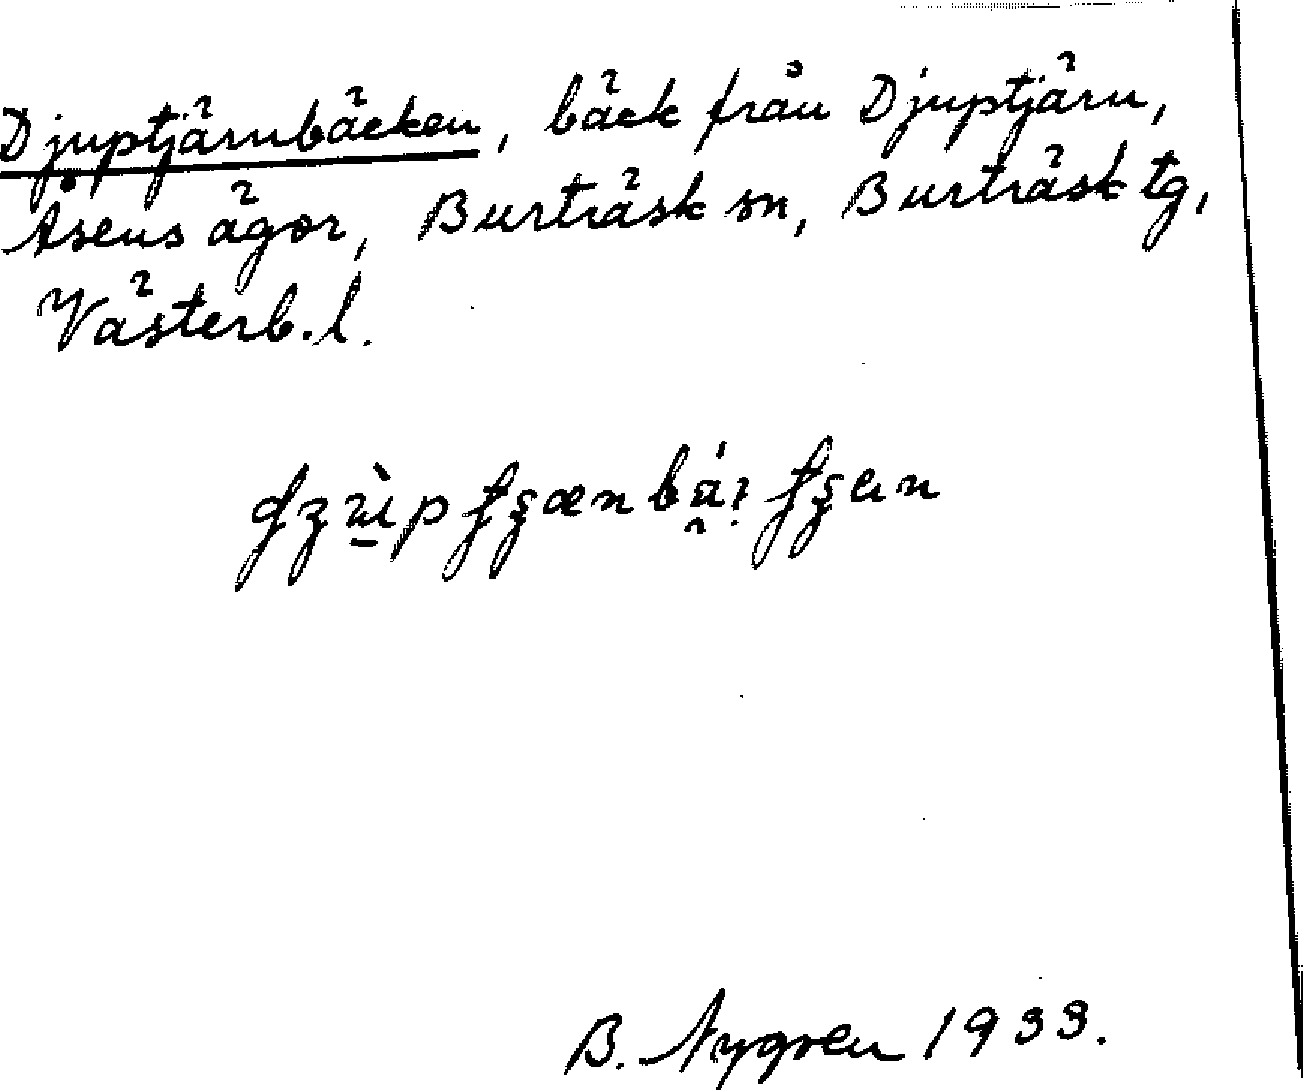 Djuptjärnbäcken, bäck från Djuptjärn,
Åsens ägor, Burträsk sn, Burträsk tg,
Västerb.l.
B. Nygren 1933.